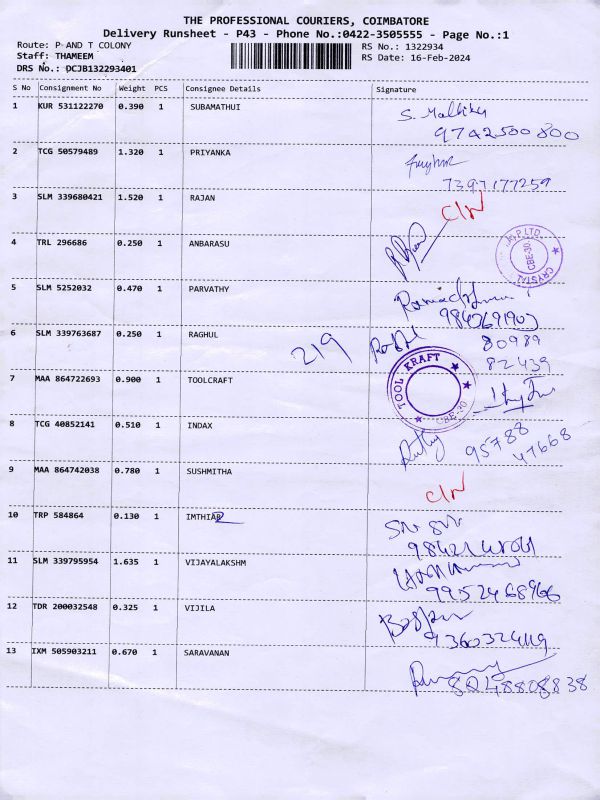 THE PROFESSIONAL COURIERS, COIMBATORE
Delivery Runsheet - P43 - Phone No.:0422-3505555 - Page No.:1
Route: P AND T COLONY RS No.: 1322934
Staff: THAMEEM RS Date: 16-Feb-2024
DRS No.: DCJB132293401
S No Consignment No Weight PCS Consignee Details Signature
1 KUR 531122270 0.390 1 SUBAMATHUI
9742500800
2 TCG 50579489 1.320 1 PRIYANKA
7397177259
3 SLM 339680421 1.520 1 RAJAN
C/N
4 TRL 296686 0.250 1 ANBARASU
CRYSTAL CBE-30. P.LTD.
5 SLM 5252032 0.470 1 PARVATHY
6 SLM 339763687 0.250 1 RAGHUL
219
80989
82439
7 MAA 864722693 0.900 1 TOOLCRAFT
TOOL KRAFT CBE-30
8 TCG 40852141 0.510 1 INDAX
95788
47668
9 MAA 864742038 0.780 1 SUSHMITHA
C/N
10 TRP 584864 0.130 1 IMTHIAR
11 SLM 339795954 1.635 1 VIJAYALAKSHM
9952468966
12 TDR 200032548 0.325 1 VIJILA
9360324119
13 IXM 505903211 0.670 1 SARAVANAN
8048808838